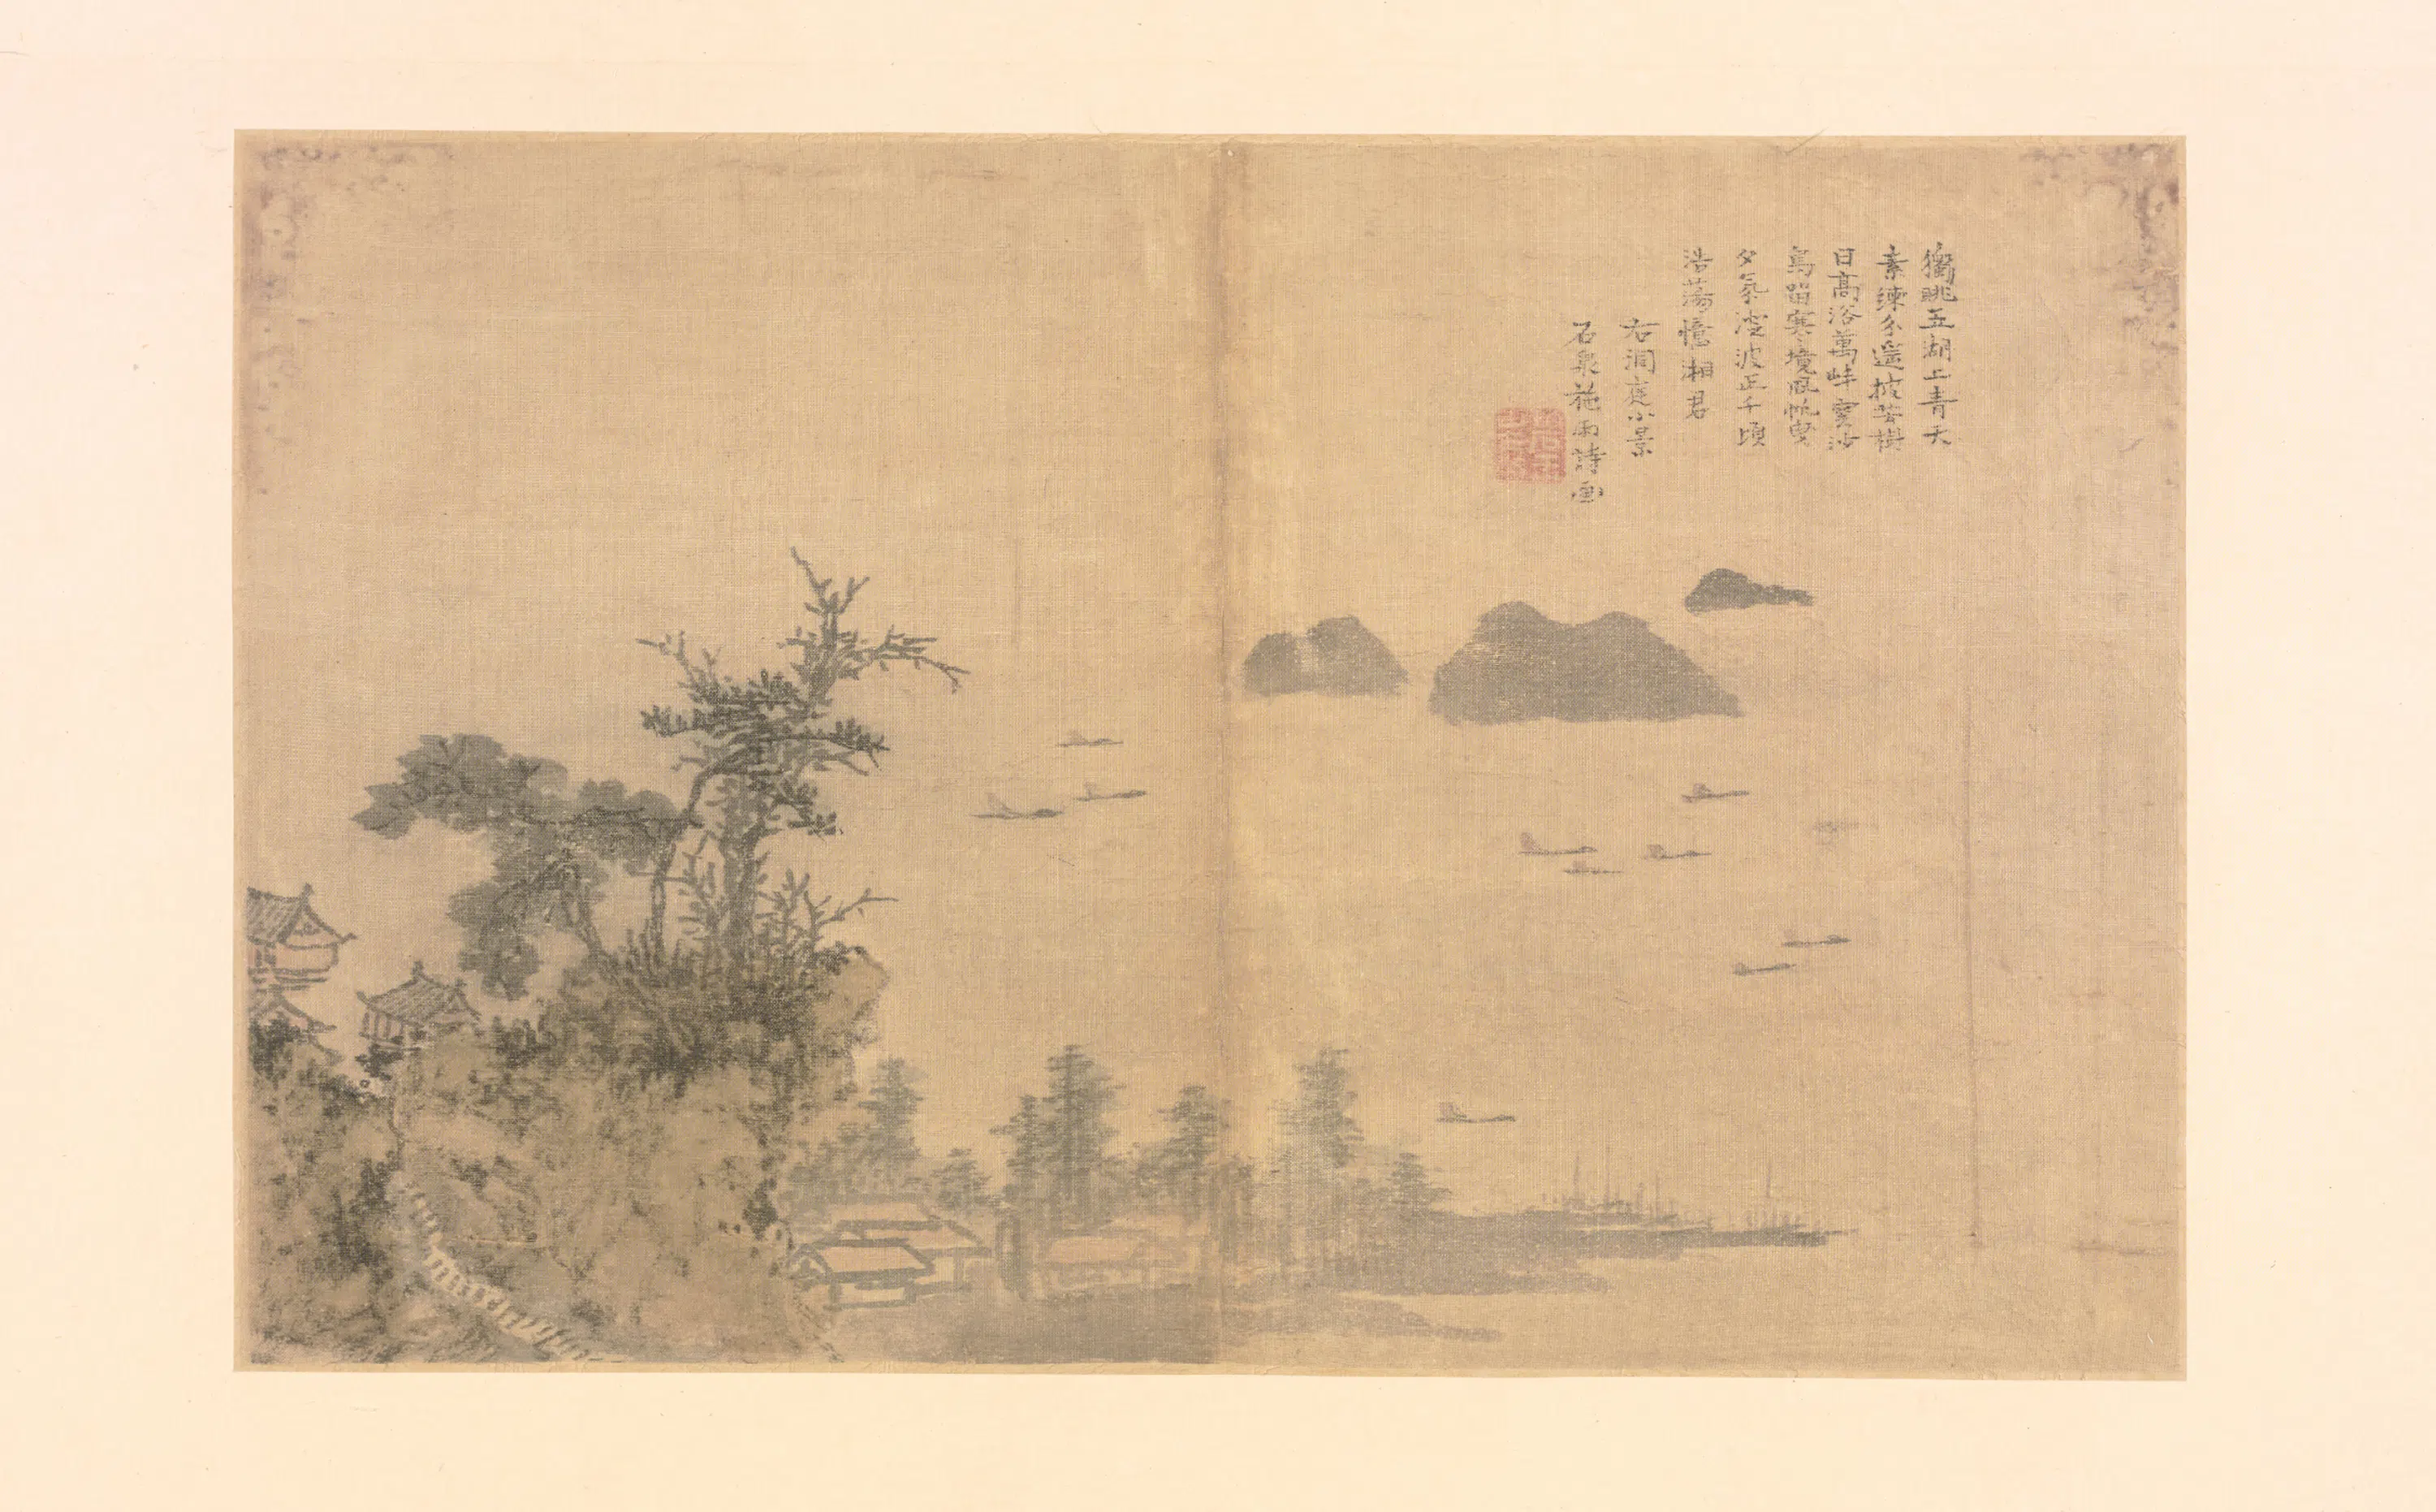 獨眺五湖上青天
素練分遥坡芸樹
日高浴萬峠雲沙
鳥留寒境風帆曳
夕氛凌波正千頃
浩蕩憶湘君
右洞庭小景
石泉施雨詩画